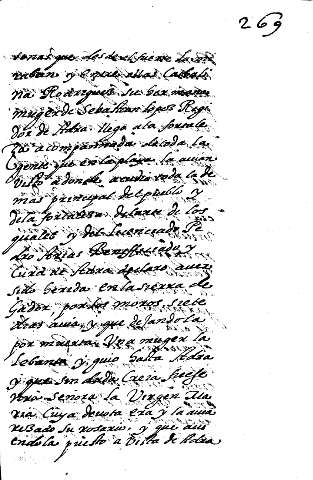 269
sonas que desde el fuerte la mi
raban y entre ellas Catholi
na Rodriguez su hermana
muger de Sebastian lopez Regi
dor de Adra llego a la fortale
za acompañada de toda la
gente que en la playa la auian
visto a donde acudio toda la de
mas principal del pueblo y
dha fortaleza delante de los
quales y del licenciado Pe
dro Arias Beneficiado y
Cura de Adra declaro auer
sido herida en la sierra de
Gador, por los moros siete
dias auia, y que dejandola
por muerta Una muger la
lebanto y guio hasta Adra
y que sin duda Creia fuese
nra Señora la Virgen Ma
ria Cuya deuota era y la auia
rezado su rosario, y que aui
endola puesto a vista de Adra